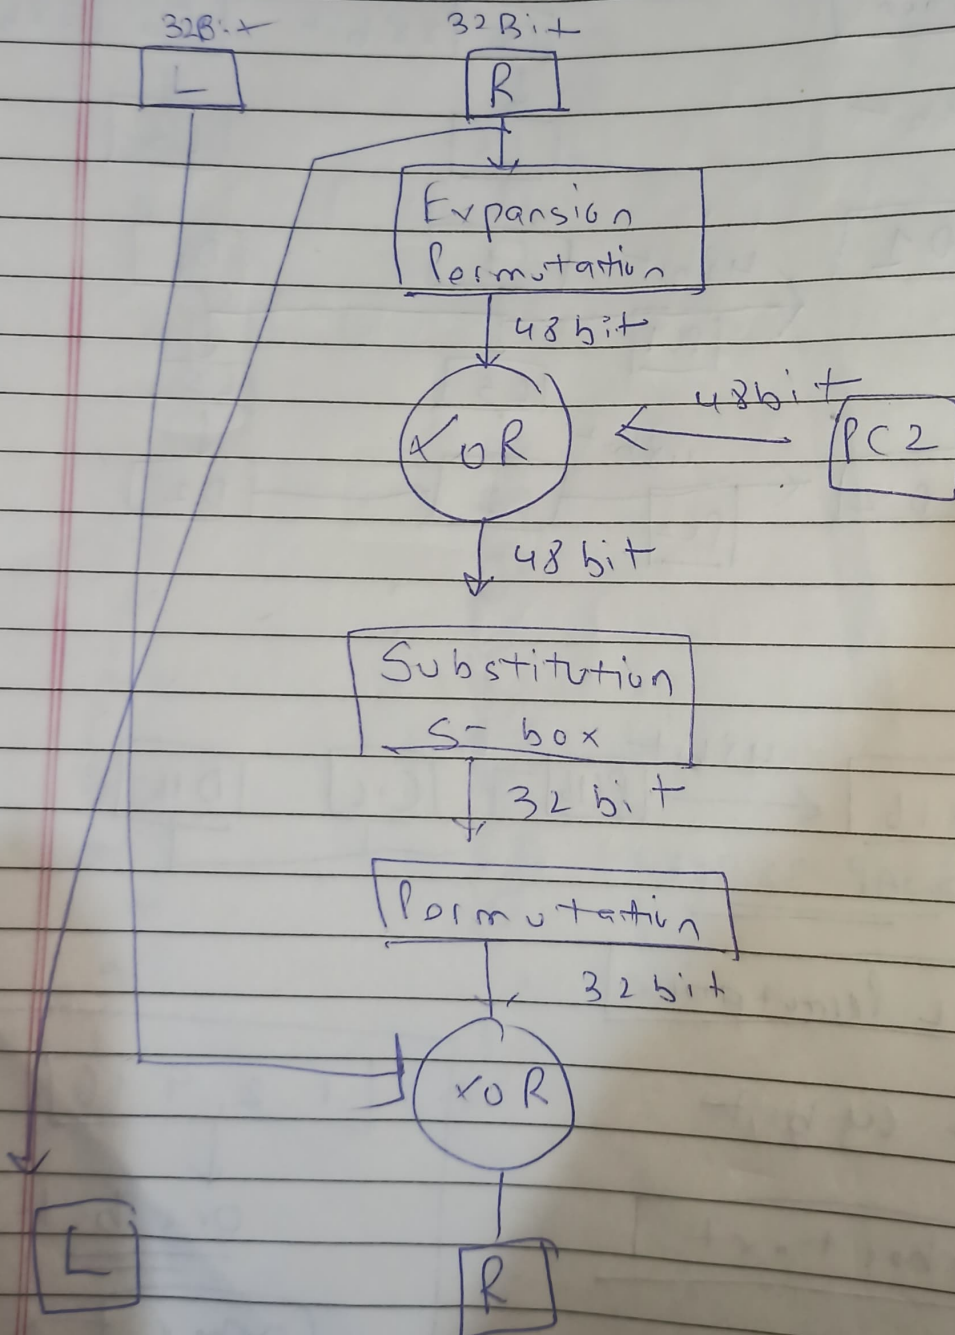 32Bit 32Bit
L R
Expansion
Permutation
48 bit
48bit
XOR PC2
48 bit
Substitution
S- box
32 bit
Permutation
32 bit
XOR
L R